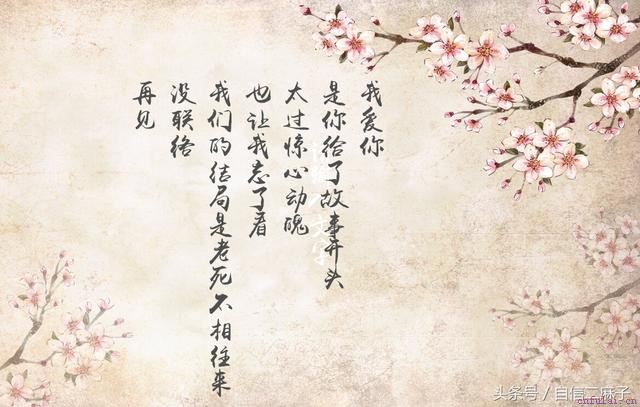 我爱你
是你给了故事开头
太过惊心动魄
也让我忘了看
我们的结局是老死不相往来
没联络
再见
头条号 / 自信二麻子
cnfulai.cn